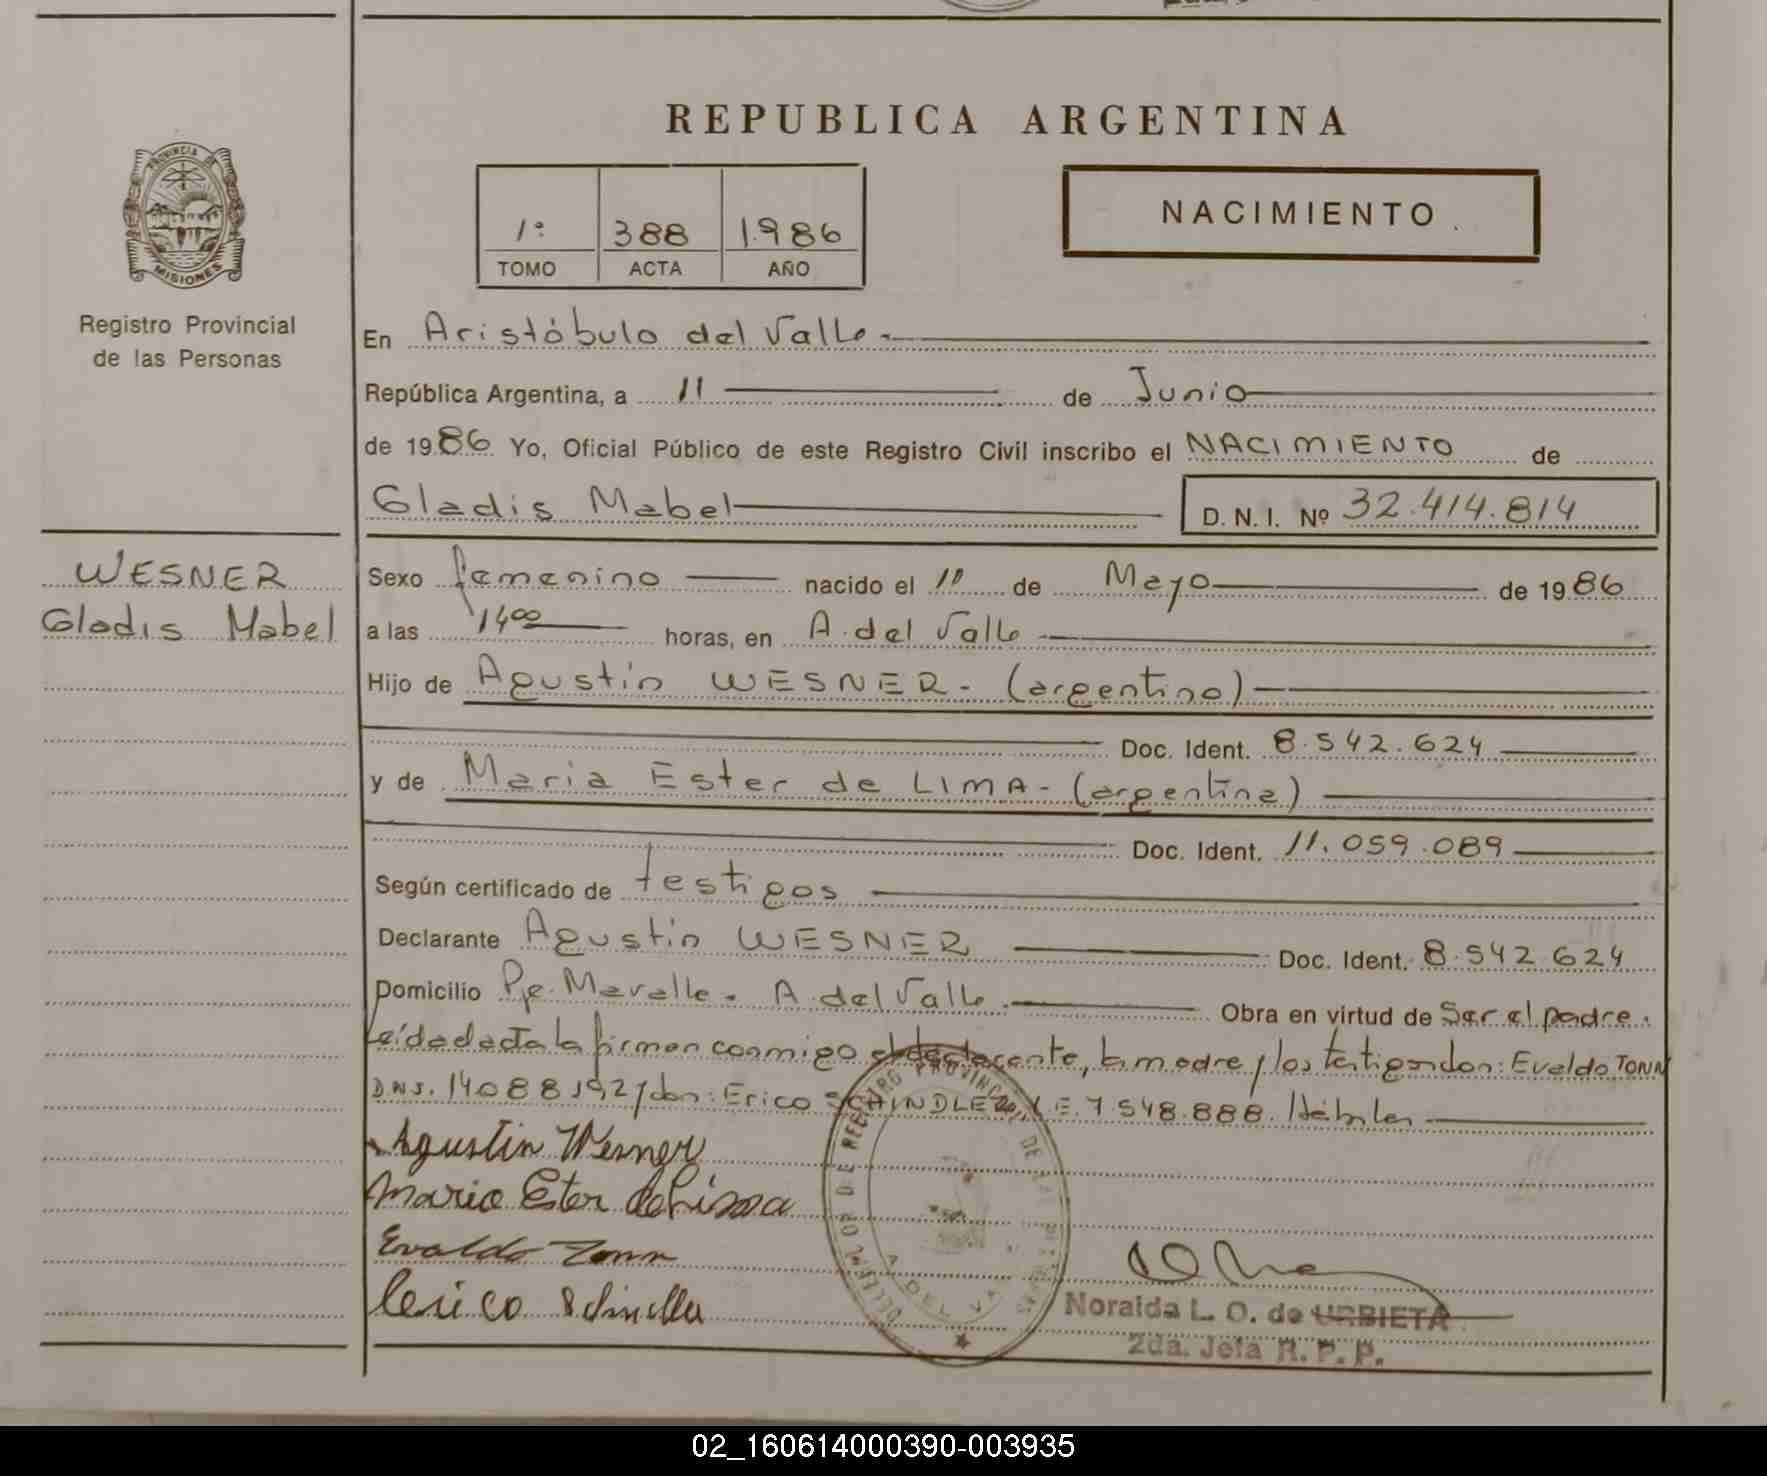 REPUBLICA ARGENTINA
PROVINCIA DE
MISIONES
Registro Provincial
de las Personas
1º 388 1.986
TOMO ACTA AÑO
NACIMIENTO
En Aristóbulo del Valle.-
República Argentina, a 11 de Junio
de 1986 Yo, Oficial Público de este Registro Civil inscribo el NACIMIENTO de
Gladis Mabel D. N. I. Nº 32.414.814
WESNER
Gladis Mabel
Sexo femenino nacido el 10 de Mayo de 1986
a las 14:00 horas, en A. del Valle
Hijo de Agustin WESNER - (argentino)
Doc. Ident. 8.542.624
y de Maria Ester de LIMA - (argentina)
Doc. Ident. 11.059.089
Según certificado de testigos
Declarante Agustin WESNER Doc. Ident. 8.542.624
Domicilio A. del Valle Obra en virtud de Ser el padre.
Leída el acta la firman conmigo el declarante, la madre y los testigos don: Evaldo TONN
D.N.I. 14088192 y don: Erico SCHINDLER L.E. 7.548.888. Hábiles
Agustin Wesner
Maria Ester de Lima
Evaldo Tonn
Erico Schindler
A. DEL VA
Noraida L. O. de URBIETA
2da. Jefa R. P. P.
02_160614000390-003935